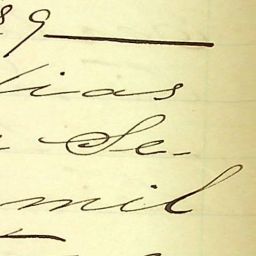 89
lias
Se-
mil